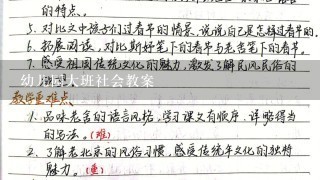 的特点。
5. 对比文中孩子们过春节的情景,说说自己是怎样过春节的。
6. 拓展阅读,对比斯妤笔下的春节与老舍笔下的春节。
7. 感受祖国传统文化的魅力,激发了解民风民俗的
幼儿园大班社会教案
教学重难点
1. 品味老舍的语言风格,学习课文有顺序,详略得当
的写法。(难)
2. 了解老北京的风俗习惯,感受传统年文化的独特
魅力。(重)